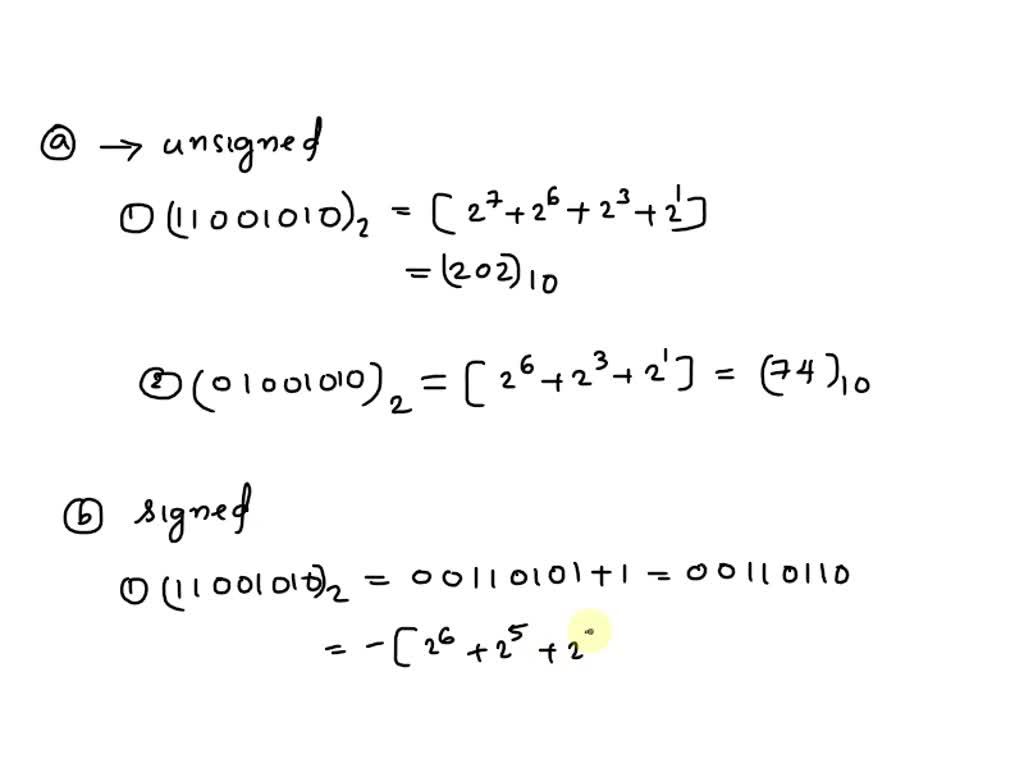 ⓐ → unsigned
① (11001010)₂ = [2⁷ + 2⁶ + 2³ + 2¹]
= (202)₁₀
② (01001010)₂ = [2⁶ + 2³ + 2¹] = (74)₁₀
ⓑ signed
① (11001010)₂ = 00110101 + 1 = 00110110
= -[2⁶ + 2⁵ + 2